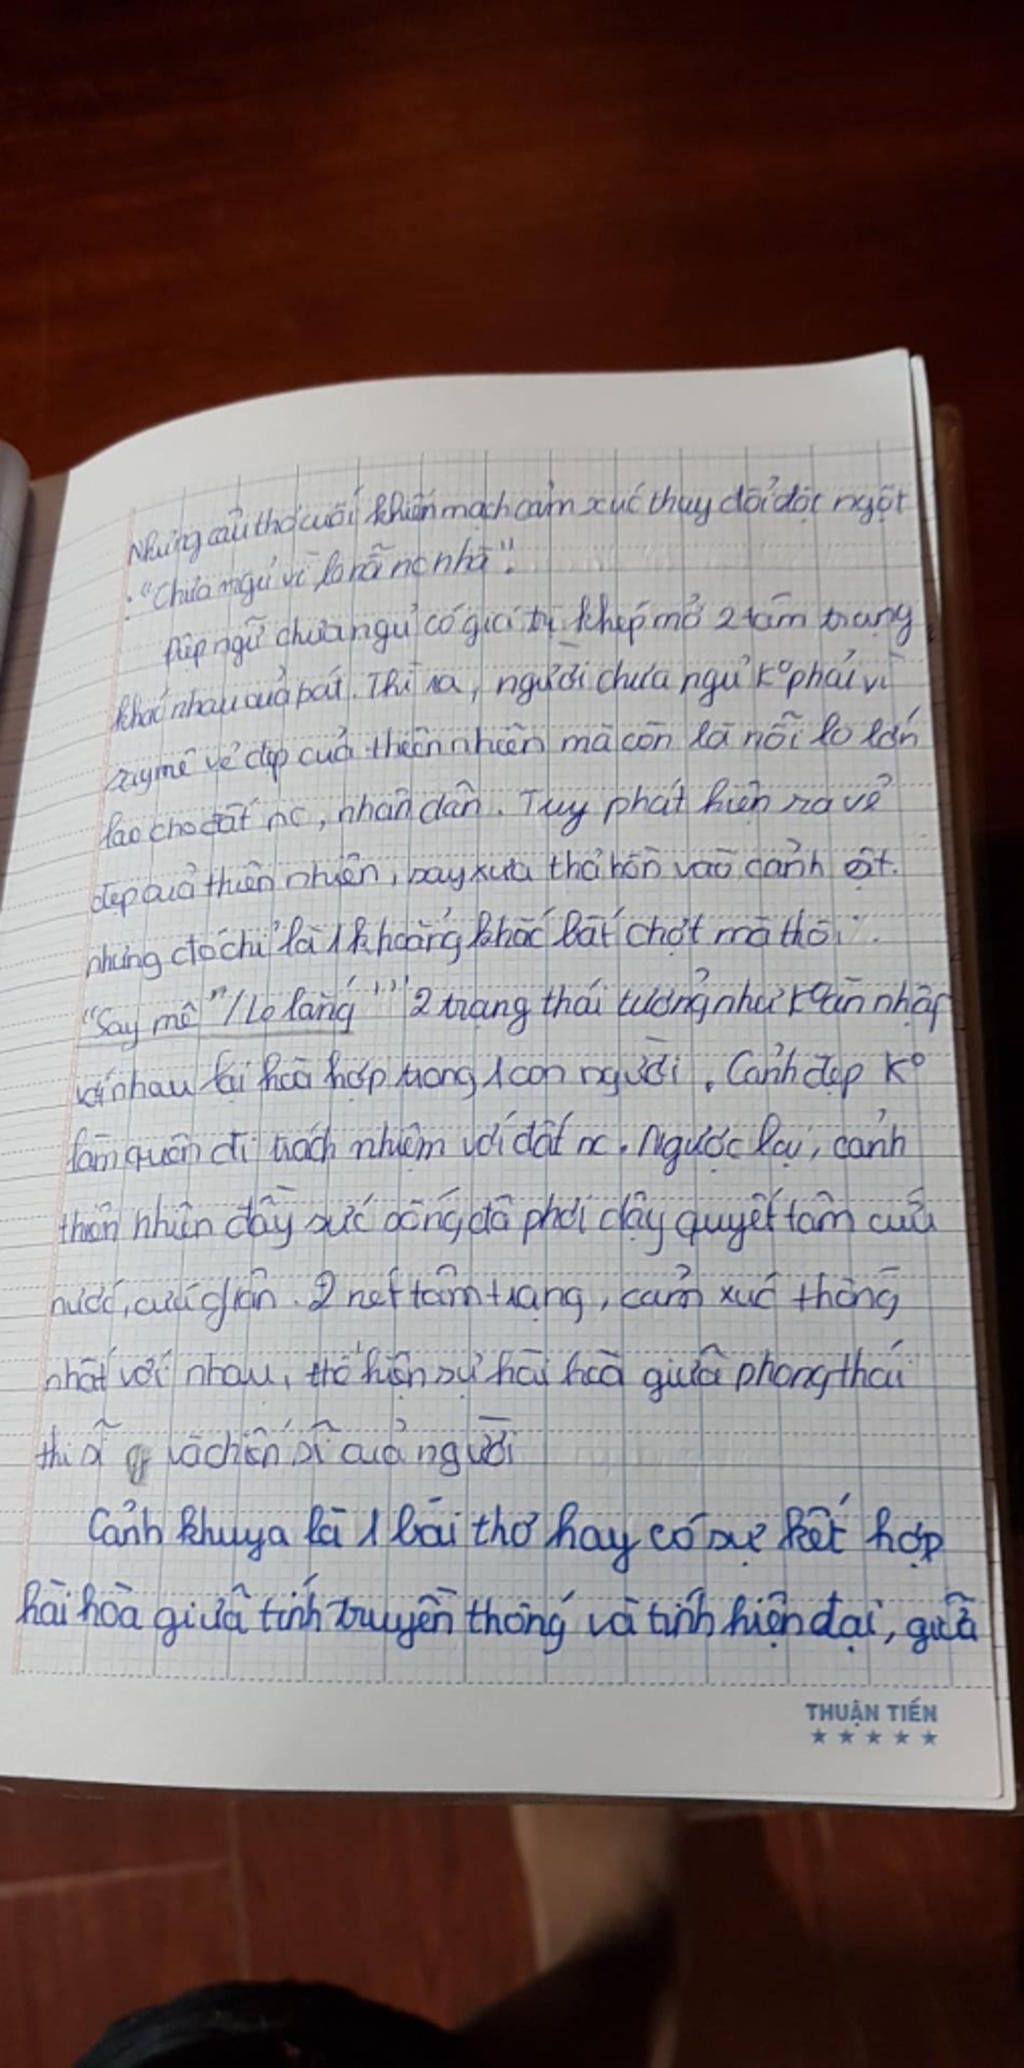 Nhưng câu thơ cuối khiến mạch cảm xúc thay đổi đột ngột
: "Chưa ngủ vì lo nỗi nc nhà".
Điệp ngữ chưa ngủ có giá trị khép mở 2 tâm trạng
khác nhau của bát. Thì ra, người chưa ngủ kº phải vì
say mê vẻ đẹp của thiên nhiên mà còn là nỗi lo lớn
lao cho đất nc, nhân dân. Tuy phát hiện ra vẻ
đẹp của thiên nhiên, say xưa thả hồn vào cảnh vật.
nhưng đó chỉ là 1 khoảng khắc bất chợt mà thôi.
"Say mê" / Lo lắng" 2 trạng thái tưởng như kº ăn nhập
với nhau lại hoà hợp trong 1 con người. Cảnh đẹp kº
làm quên đi trách nhiệm với đất nc. Ngược lại, cảnh
thiên nhiên đầy sức sống đã phơi dậy quyết tâm cứu
nước, cứu dân. 2 nét tâm trạng, cảm xúc thống
nhất với nhau, thể hiện sự hài hoà giữa phong thái
thi sĩ và chiến sĩ của người
Cảnh khuya là 1 bài thơ hay có sự kết hợp
hài hòa giữa tính truyền thống và tính hiện đại, giữa
THUẬN TIẾN